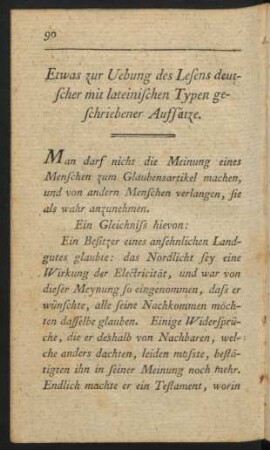 90
Etwas zur Uebung des Leſens deut-
ſcher mit lateiniſchen Typen ge-
ſchriebener Aufſätze.
Man darf nicht die Meinung eines
Menſchen zum Glaubensartikel machen,
und von andern Menſchen verlangen, ſie
als wahr anzunehmen.
Ein Gleichniſs hievon:
Ein Beſitzer eines anſehnlichen Land-
gutes glaubte: das Nordlicht ſey eine
Wirkung der Electricität, und war von
dieſer Meynung ſo eingenommen, daſs er
wünſchte, alle ſeine Nachkommen möch-
ten daſſelbe glauben. Einige Widerſprü-
che, die er deshalb von Nachbaren, wel-
che anders dachten, leiden muſste, beſtä-
tigten ihn in ſeiner Meinung noch mehr.
Endlich machte er ein Teſtament, worin